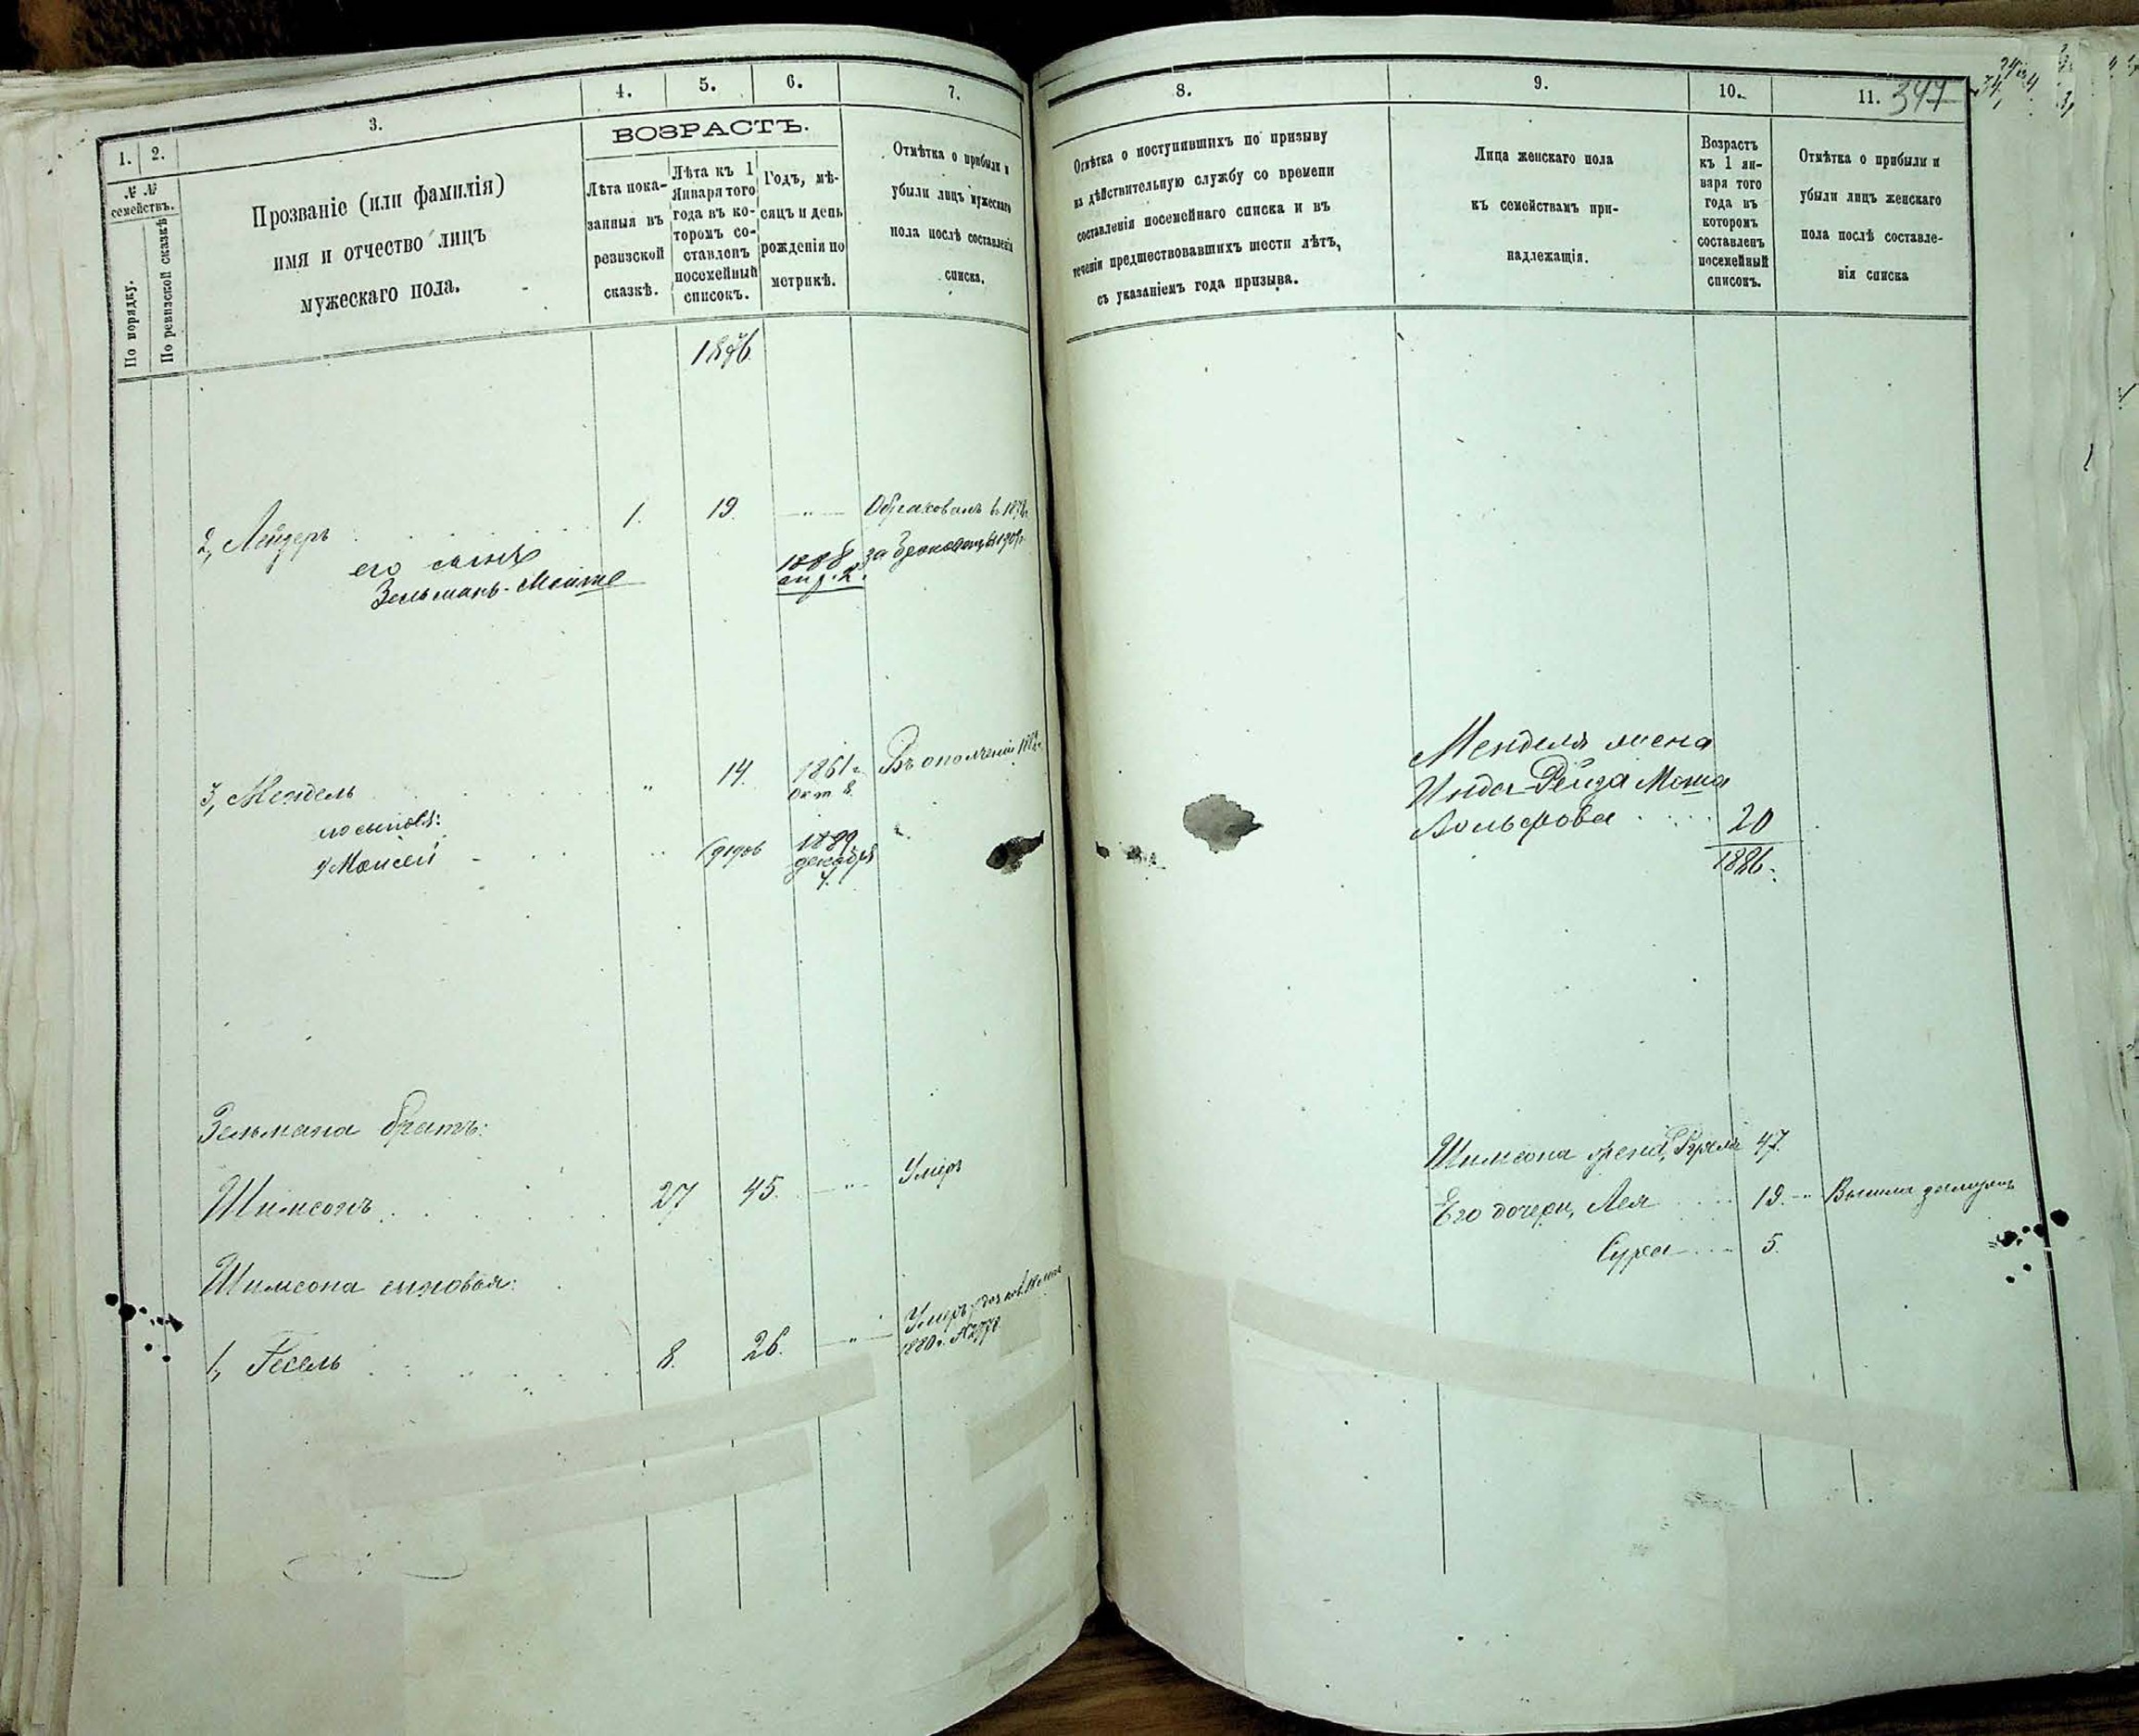 1.
2.
3.
4.
5.
6.
7.
№ №
семействъ.
По порядку.
По ревизской сказкѣ
Прозваніе (или фамилія)
имя и отчество лицъ
мужескаго пола.
ВОЗРАСТЪ.
Лѣта пока-
занныя въ
ревизской
сказкѣ.
Лѣта къ 1
Января того
года въ ко-
торомъ со-
ставленъ
посемейный
списокъ.
Годъ, мѣ-
сяцъ и день
рожденія по
метрикѣ.
Отмѣтка о прибыли и
убыли лицъ мужескаго
пола послѣ составленія
списка.
1876
2, Лейзеръ 1. 19. — „ —
его сынъ
Зельманъ-Мойше 1888 апр. 2.
3, Мендель „ 14. 1861 г. Окт 8. Въ ополченіи
его сыновья:
1/ Моисей 1889 декабря 4.
Зельмана братъ:
Шимсонъ 27 45. — „ — Умеръ
Шимсона сыновья:
1, Гесель 8. 26. — „ — Умеръ
1880 г.
8.
9.
10.
11.
347
Отмѣтка о поступившихъ по призыву
на дѣйствительную службу со времени
составленія посемейнаго списка и въ
теченіи предшествовавшихъ шести лѣтъ,
съ указаніемъ года призыва.
Лица женскаго пола
къ семействамъ при-
надлежащія.
Возрастъ
къ 1 ян-
варя того
года въ
которомъ
составленъ
посемейный
списокъ.
Отмѣтка о прибыли и
убыли лицъ женскаго
пола послѣ составле-
нія списка
Менделя жена
Рейза
Вольфова 20
1886.
Шимсона жена, 47.
Его дочери, Лея 19. Вышла замужъ
Сура 5.